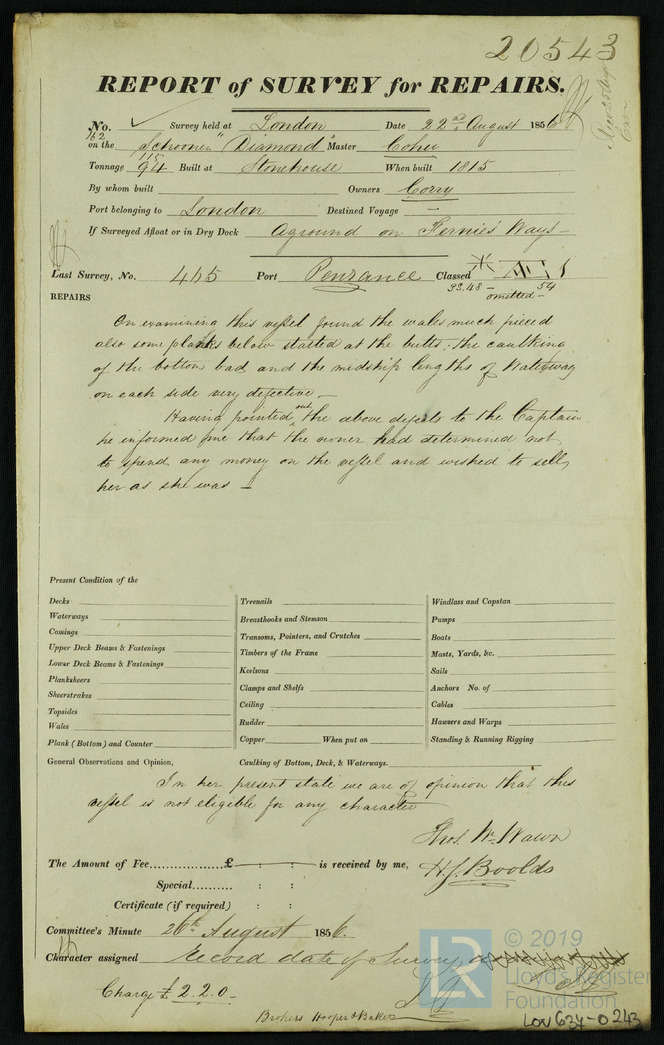 20543
REPORT of SURVEY for REPAIRS.
No. 162 Survey held at London Date 22nd August 1856
on the Schooner "Diamond" Master Cohu
Tonnage 115 94 Built at Stonehouse When built 1815
By whom built Owners Corry
Port belonging to London Destined Voyage —
If Surveyed Afloat or in Dry Dock Aground on Fernies' Ways —
Last Survey, No. 465 Port Penzance Classed
33.48 — 54
omitted —
REPAIRS
On examining this vessel found the wales much pieced
also some planks below started at the butts. The caulking
of the bottom bad and the midship lengths of Waterway
on each side very defective —
Having pointed out the above defects to the Captain
he informed me that the owner had determined not
to spend any money on the vessel and wished to sell
her as she was —
Present Condition of the
Decks
Waterways
Comings
Upper Deck Beams & Fastenings
Lower Deck Beams & Fastenings
Planksheers
Sheerstrakes
Topsides
Wales
Plank (Bottom) and Counter
Treenails
Breasthooks and Stemson
Transoms, Pointers, and Crutches
Timbers of the Frame
Keelsons
Clamps and Shelfs
Ceiling
Rudder
Copper When put on
Windlass and Capstan
Pumps
Boats
Masts, Yards, &c.
Sails
Anchors No. of
Cables
Hawsers and Warps
Standing & Running Rigging
General Observations and Opinion, Caulking of Bottom, Deck, & Waterways.
In her present state we are of opinion that this
vessel is not eligible for any character
Thos. Wm. Wawn
The Amount of Fee...............£ : : is received by me, H.J. Boolds
Special.......... : :
Certificate (if required) : :
Committee's Minute 26th August 1856.
Character assigned Record date of Survey
Charge £2.2.0.
Brokers Hooper & Baker
© 2019
LR
Lloyd's Register
Foundation
LOV 634-0243